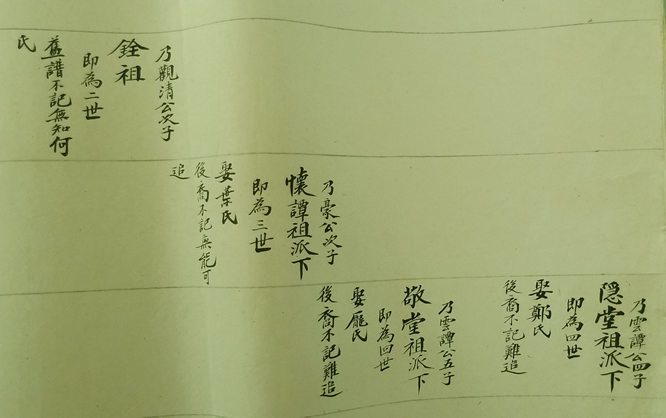 乃觀清公次子
銓祖
即為二世
舊譜不記無知何
氏
乃豪公次子
懷譚祖派下
即為三世
娶葉氏
後裔不記無能可
追
乃雲譚公四子
隱堂祖派下
即為四世
娶鄭氏
後裔不記難追
乃雲譚公五子
敬堂祖派下
即為四世
娶龐氏
後裔不記難追